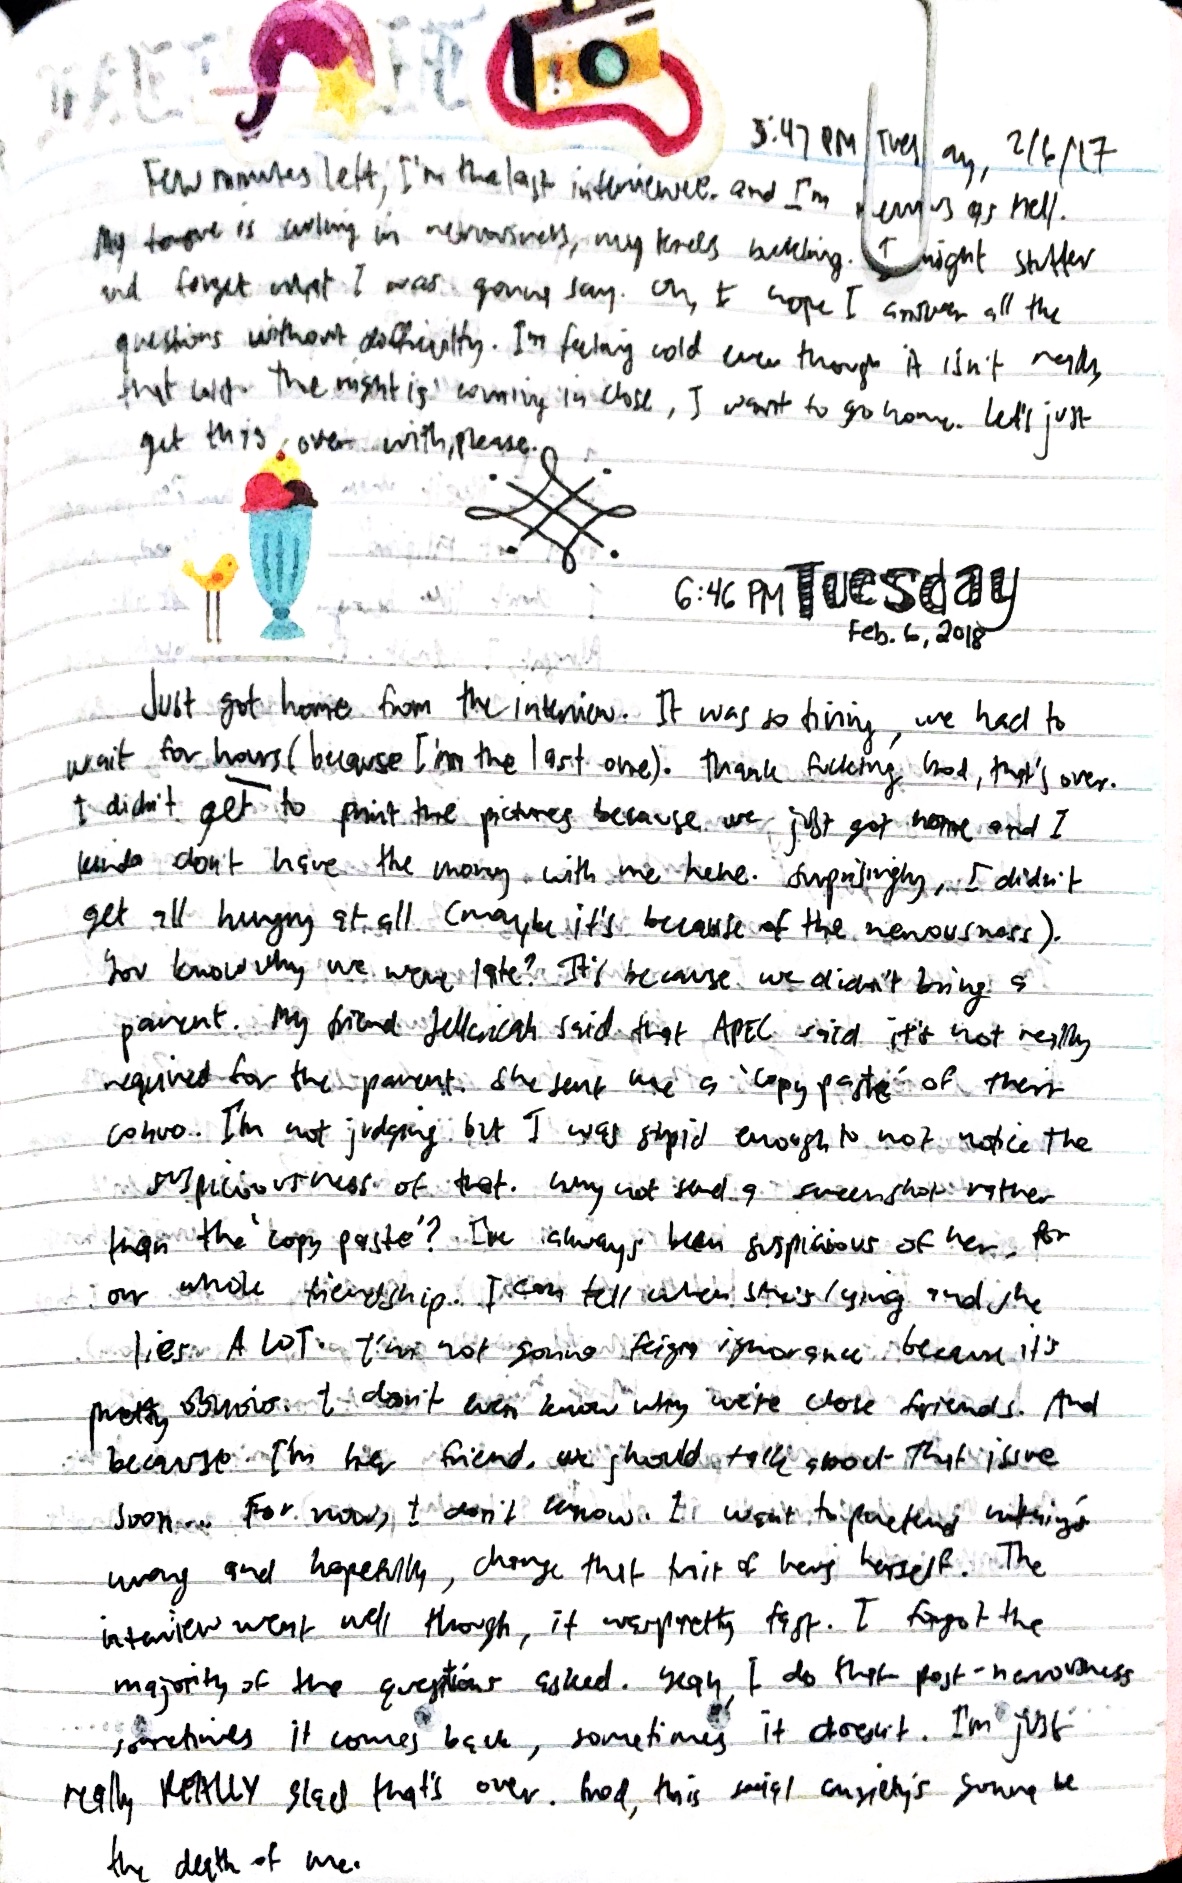 5:47 PM Tuesday, 2/6/17
Few minutes left, I'm the last interviewee. and I'm nervous as Hell.
My tongue is curling in nervousness, my knees buckling. I might stutter
and forget what I was gonna say. Oh, I hope I answer all the
questions without difficulty. I'm feeling cold even though it isn't really
that cold. The night is coming in close, I want to go home. Let's just
get this over with, please.
6:46 PM Tuesday
Feb. 6, 2018
Just got home from the interview. It was so tiring, we had to
wait for hours (because I'm the last one). Thank fucking God, that's over.
I didn't get to print the pictures because we just got home and I
kinda don't have the money with me hehe. Surprisingly, I didn't
get all hungry at all (maybe it's because of the nervousness).
You know why we were late? It's because we didn't bring a
parent. My friend said that APEC said it's not really
required for the parent. She sent me a 'copy paste' of their
convo. I'm not judging but I was stupid enough to not notice the
suspiciousness of that. Why not send a screenshot rather
than the 'copy paste'? I've always been suspicious of her, for
our whole friendship. I can tell when she's lying and she
lies A LOT. I'm not gonna feign ignorance because it's
pretty obvious. I don't even know why we're close friends. And
because I'm her friend, we should talk about that issue
soon... For now, I don't know. I want to pretend nothing's
wrong and hopefully, change that trait of hers herself. The
interview went well though, it was pretty fast. I forgot the
majority of the questions asked. Yeah, I do that post-nervousness
sometimes it comes back, sometimes it doesn't. I'm just
really REALLY glad that's over. God, this social anxiety's gonna be
the death of me.